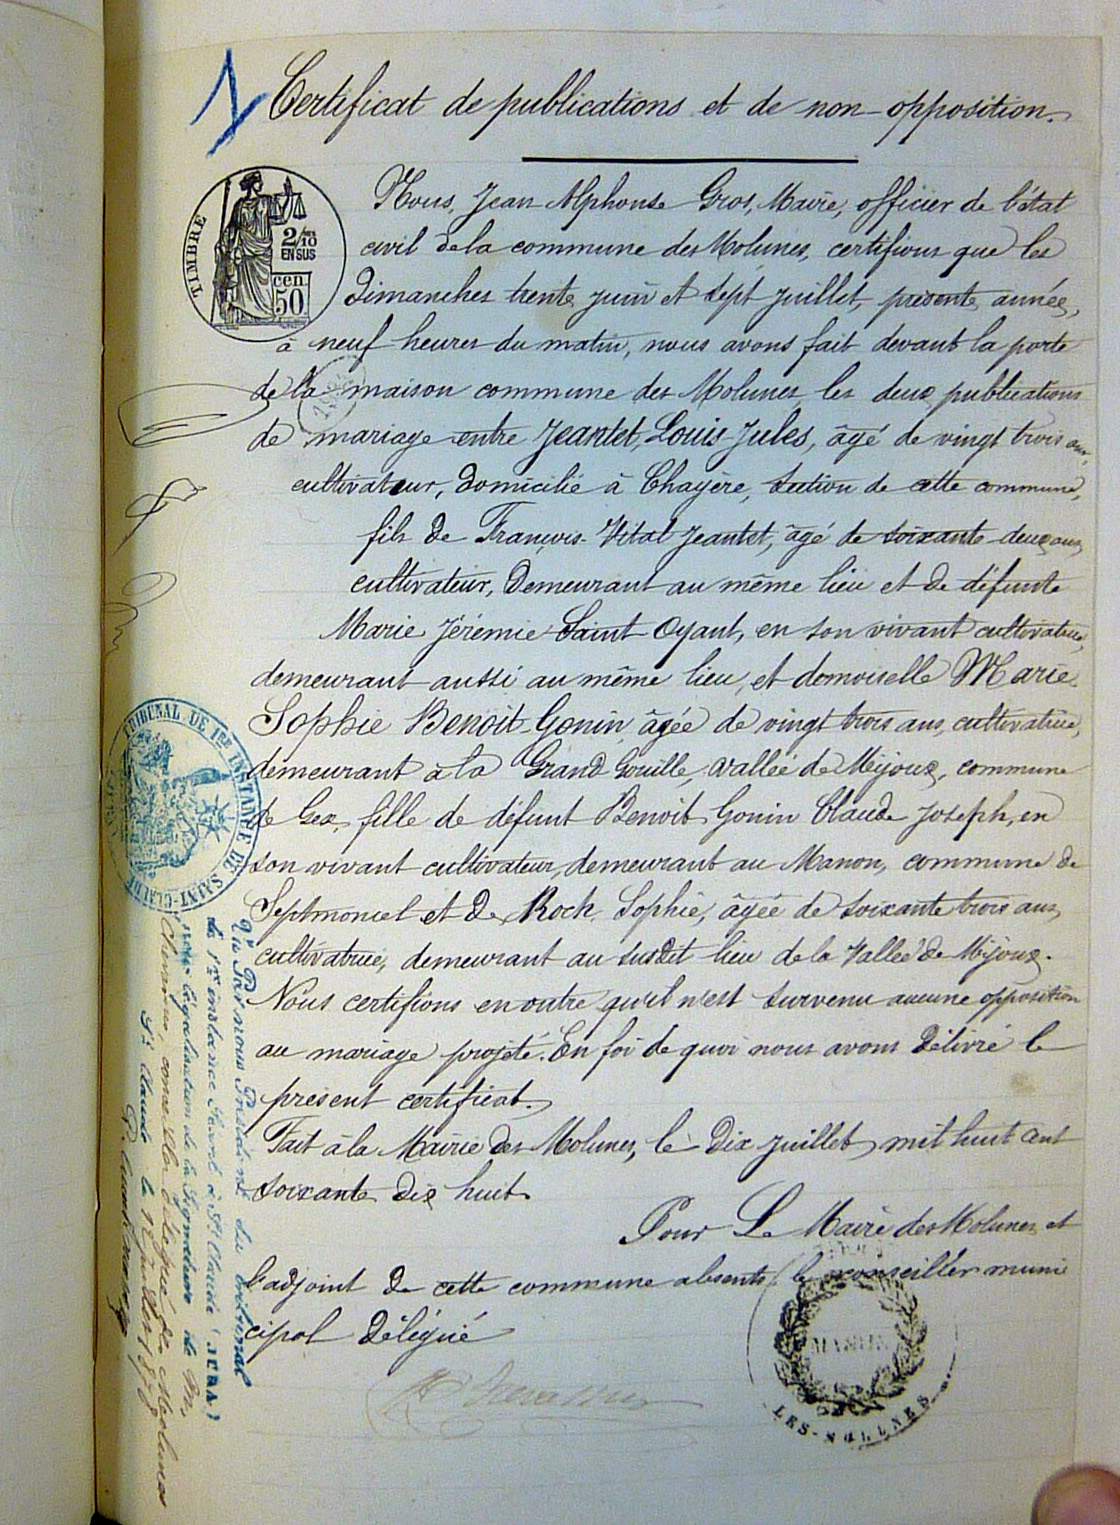 1
Certificat de publications et de non-opposition.
TIMBRE
2/10
EN SUS
cen.
50
Nous, Jean Alphonse Gros, Maire, officier de l'état
civil de la commune des Molunes, certifions que les
Dimanches trente juin et sept juillet, présente année,
à neuf heures du matin, nous avons fait devant la porte
de la maison commune des Molunes les deux publications
de mariage entre Jeantet, Louis Jules, âgé de vingt trois ans,
cultivateur, domicilié à Chayère, section de cette commune,
fils de François-Vital Jeantet, âgé de soixante-deux ans,
cultivateur, demeurant au même lieu et de défunte
Marie Jérémie Saint Oyant, en son vivant cultivatrice,
demeurant aussi au même lieu, et demoiselle Marie-
Sophie Benoit-Gonin, âgée de vingt trois ans, cultivatrice,
demeurant à la Grand Gouille, vallée de Mijoux, commune
de Gex, fille de défunt Benoit Gonin Claude Joseph, en
son vivant cultivateur, demeurant au Manon, commune de
Septmoncel et de Roch Sophie, âgée de soixante trois ans,
cultivatrice, demeurant au susdit lieu de la Vallée de Mijoux.
Nous certifions en outre qu'il n'est survenu aucune opposition
au mariage projeté. En foi de quoi nous avons délivré le
présent certificat.
Fait à la Mairie des Molunes, le dix juillet mil huit cent
soixante dix huit.
Pour Le Maire des Molunes et
l'adjoint de cette commune absents, le conseiller muni
cipal délégué
MAIRIE
LES-MOLUNES
TRIBUNAL DE 1ère INSTANCE DE SAINT-CLAUDE
Vu Par nous Président du tribunal
de 1re instance Séant à St Claude (JURA)
pour légalisation de la Signature de Mr
conseiller délégué des Molunes
St Claude le juillet 1878